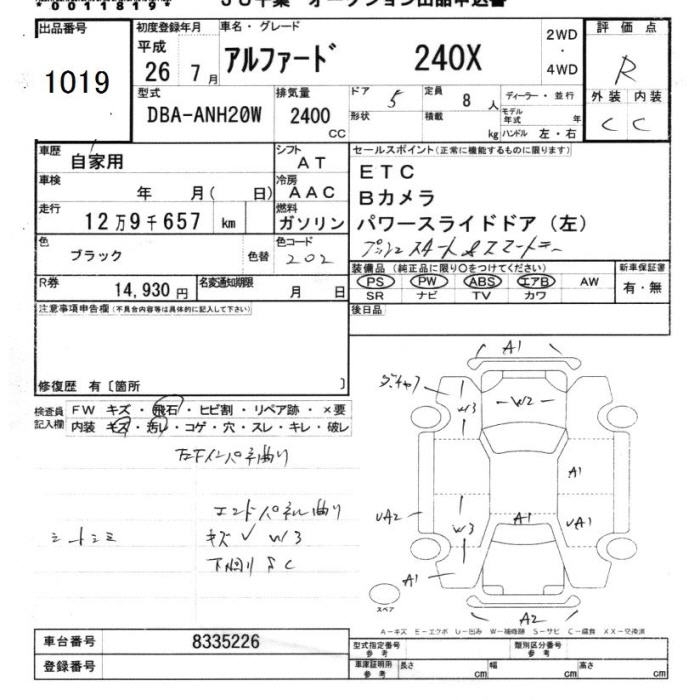 出品番号 1019
初度登録年月 平成 26 7月
車名・グレード アルファード 240X
2WD・4WD
評価点 R
外装 内装
C C
型式 DBA-ANH20W
排気量 2400 CC
ドア 5 定員 8人 ディーラー・並行
形状 積載 kg モデル年式 年
ハンドル 左・右
車歴 自家用
シフト AT
車検 年 月( 日)
冷房 AAC
走行 12万9千657 km
燃料 ガソリン
色 ブラック 色替
色コード 202
R券 14,930円 名変通知期限 月 日
セールスポイント(正常に機能するものに限ります)
ETC
Bカメラ
パワースライドドア(左)
プッシュスタート&スマートキー
装備品(純正品に限り○をつけてください)
PS PW ABS エアB AW
SR ナビ TV カワ
新車保証書
有・無
後日品
注意事項申告欄(不具合内容等は具体的に記入して下さい)
修復歴 有〔箇所 〕
検査員記入欄
FW キズ・飛石・ヒビ割・リペア跡・×要
内装 キズ・汚レ・コゲ・穴・スレ・キレ・破レ
エンドパネル曲り
シートシミ キズ W3
下回り S C
A1
W3 W2
A1
UA2 W3 A1 UA1
A1
A2
スペア
A-キズ E-エクボ U-凹み W-補修跡 S-サビ C-腐食 XX-交換済
車台番号 8335226
登録番号
型式指定番号 参考 類別区分番号 参考
車庫証明用 参考 長さ cm 幅 cm 高さ cm